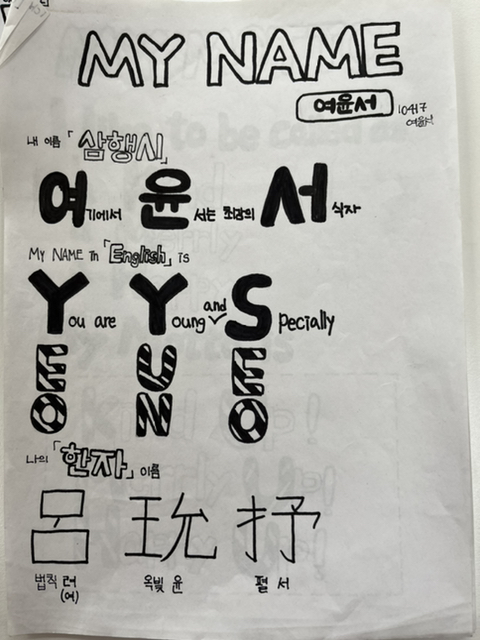 MY NAME
여윤서
10417
여윤서
내 이름 「삼행시」
여기에서 윤서는 최강의 서식자
MY NAME In 「English」 is
You are Young and Specially
E U E
O N O
나의 「한자」 이름
呂 玧 抒
법칙 려 옥빛 윤 펼 서
(여)